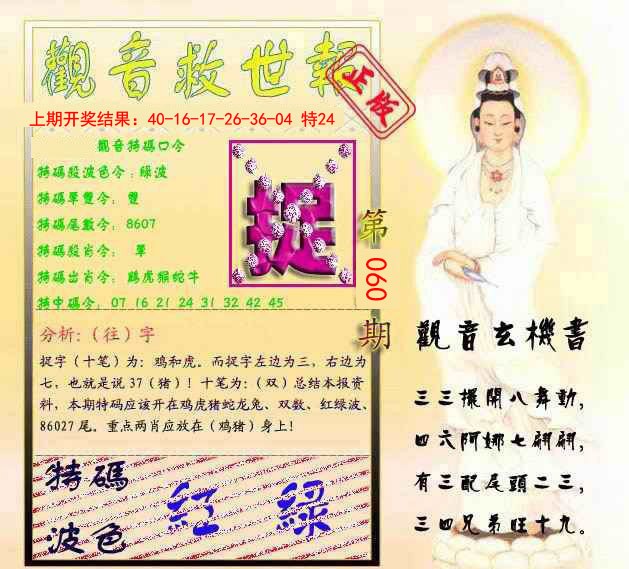 觀音救世報
正版
上期开奖结果: 40-16-17-26-36-04 特24
觀音特碼口令
特碼殺波色令:綠波
特碼單雙令: 雙
特碼尾數令: 8607
特碼殺肖令: 羊
特碼出肖令: 鷄虎猴蛇牛
特中碼令: 07 16 21 24 31 32 42 45
捉
第
060
期
分析:（往）字
捉字（十笔）为: 鸡和虎。而捉字左边为三，右边为
七，也就是说 37（猪）！十笔为:（双）总结本报资
料，本期特码应该开在鸡虎猪蛇龙兔、双数、红绿波、
86027 尾。重点两肖应放在（鸡猪）身上！
特碼
波色
紅 綠
觀音玄機書
三三擺開八舞動,
四六阿娜七翩翩,
有三配尾頭二三,
三四兄弟旺十九。